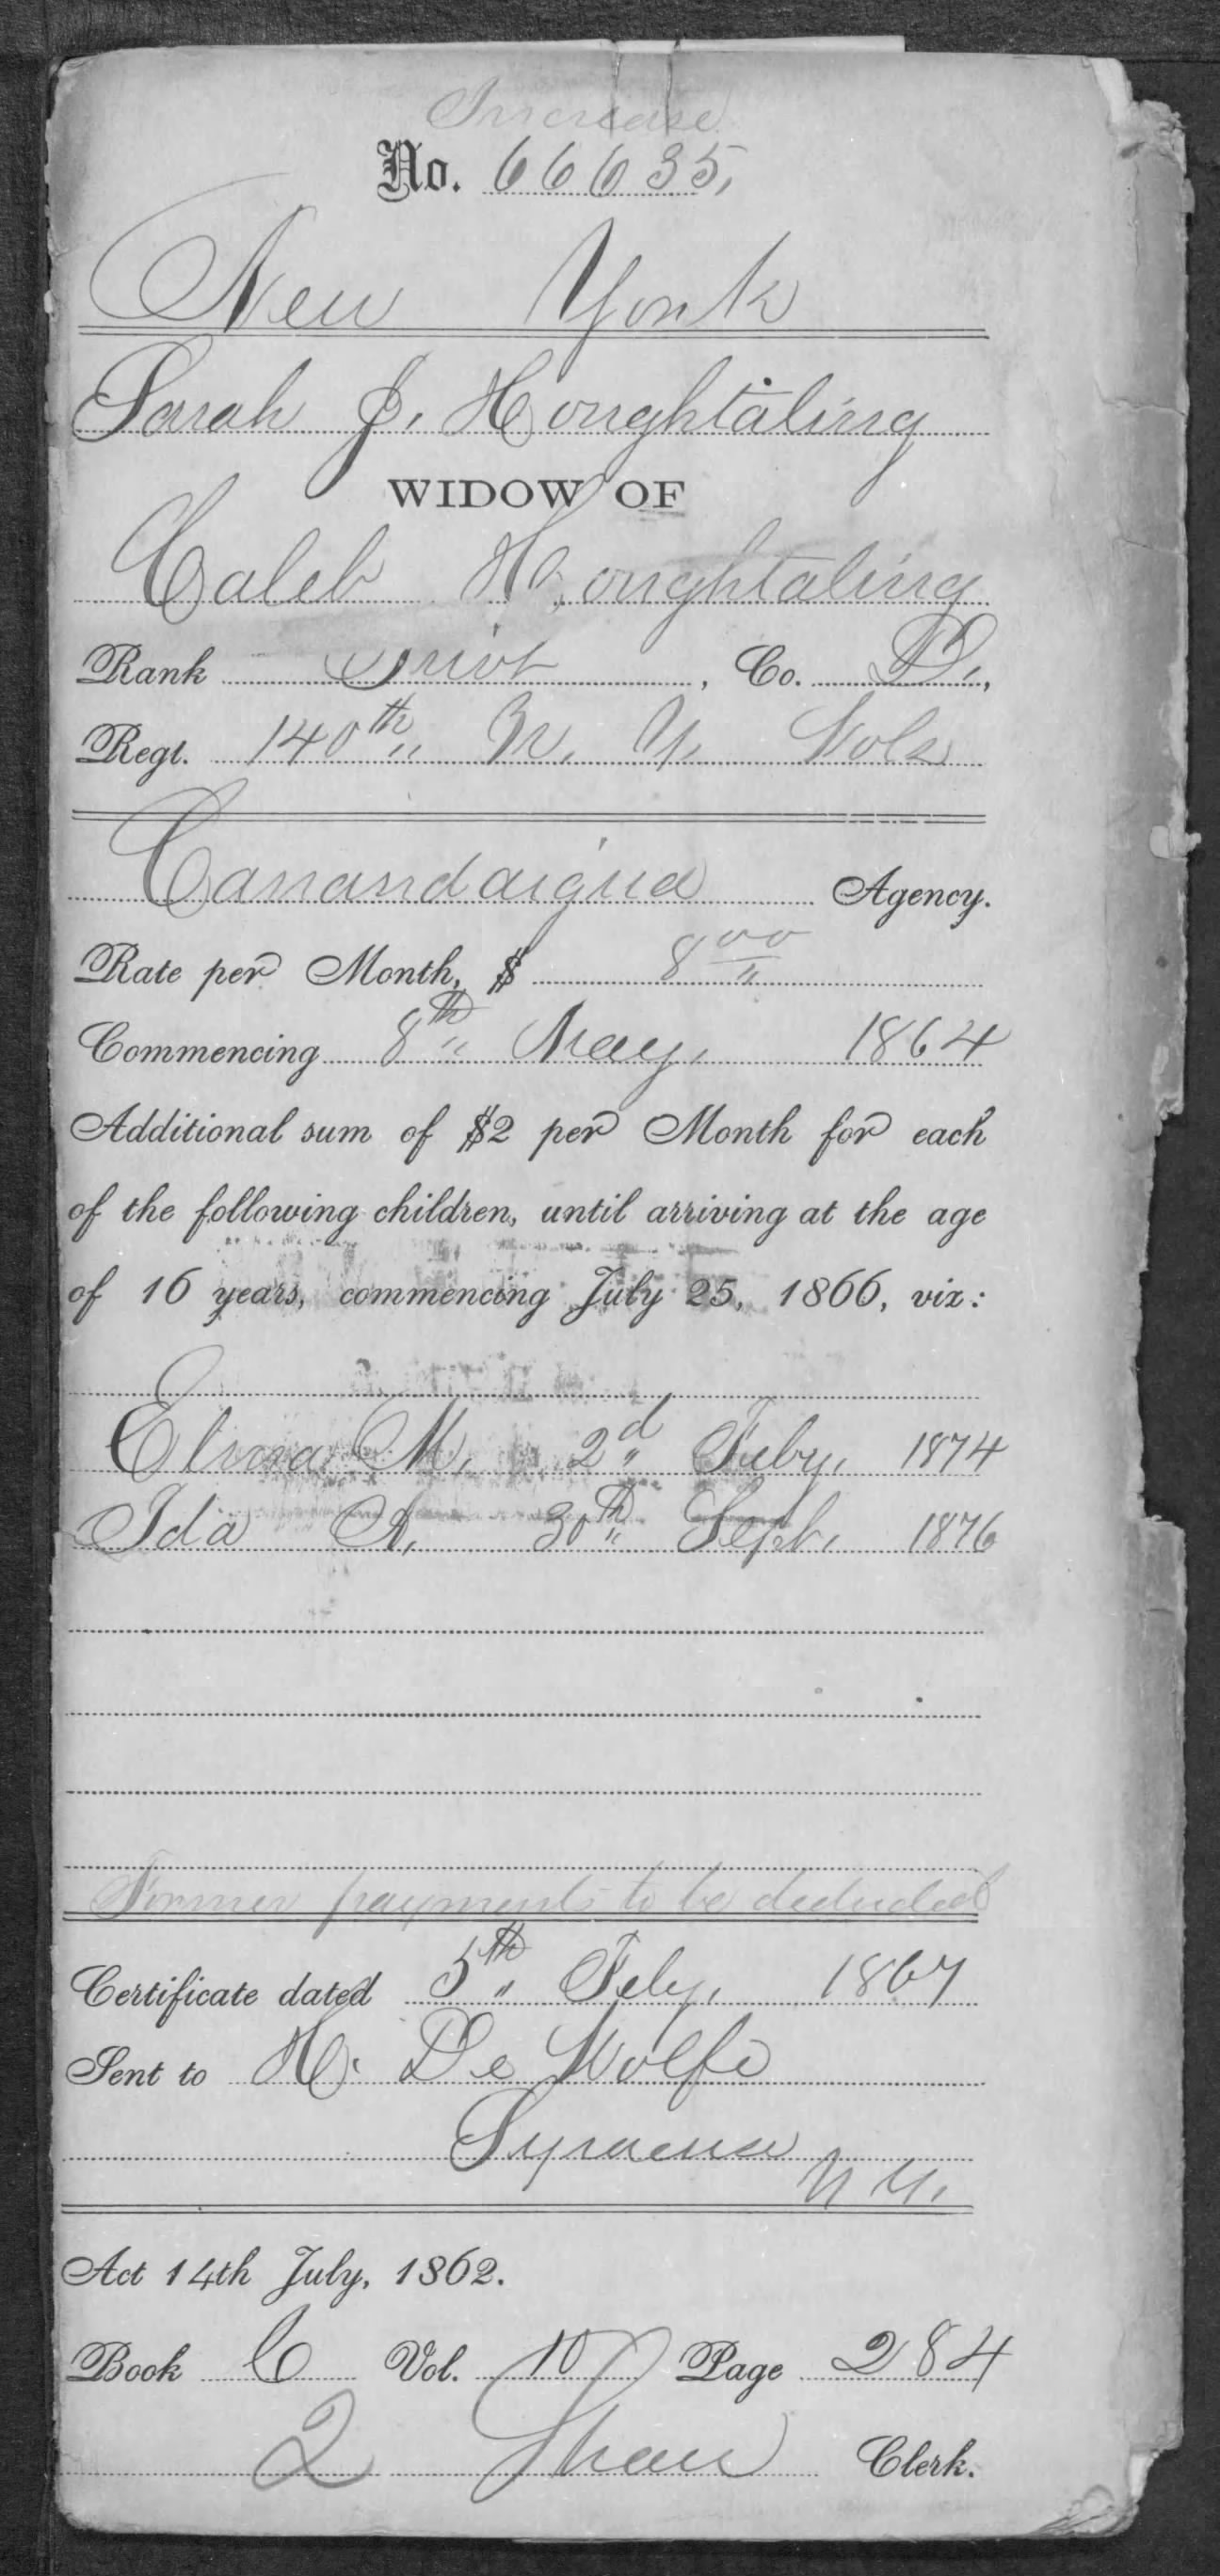 Increase
No. 66635,
New York
Sarah J. Houghtaling
WIDOW OF
Caleb Houghtaling
Rank Privt, Co. D.,
Regt. 140th N. Y. Vols
Canandaigua Agency.
Rate per Month, $ 8 00
Commencing 8th May, 1864
Additional sum of $2 per Month for each
of the following children, until arriving at the age
of 16 years, commencing July 25, 1866, viz:
Elma M. 2d Feby, 1874
Ida A. 30th Sept. 1876
Former payments to be deducted
Certificate dated 5th Feby, 1867
Sent to H. De Wolfe
Syracuse
N Y.
Act 14th July, 1862.
Book C Vol. 10 Page 284
2 Shaw Clerk.